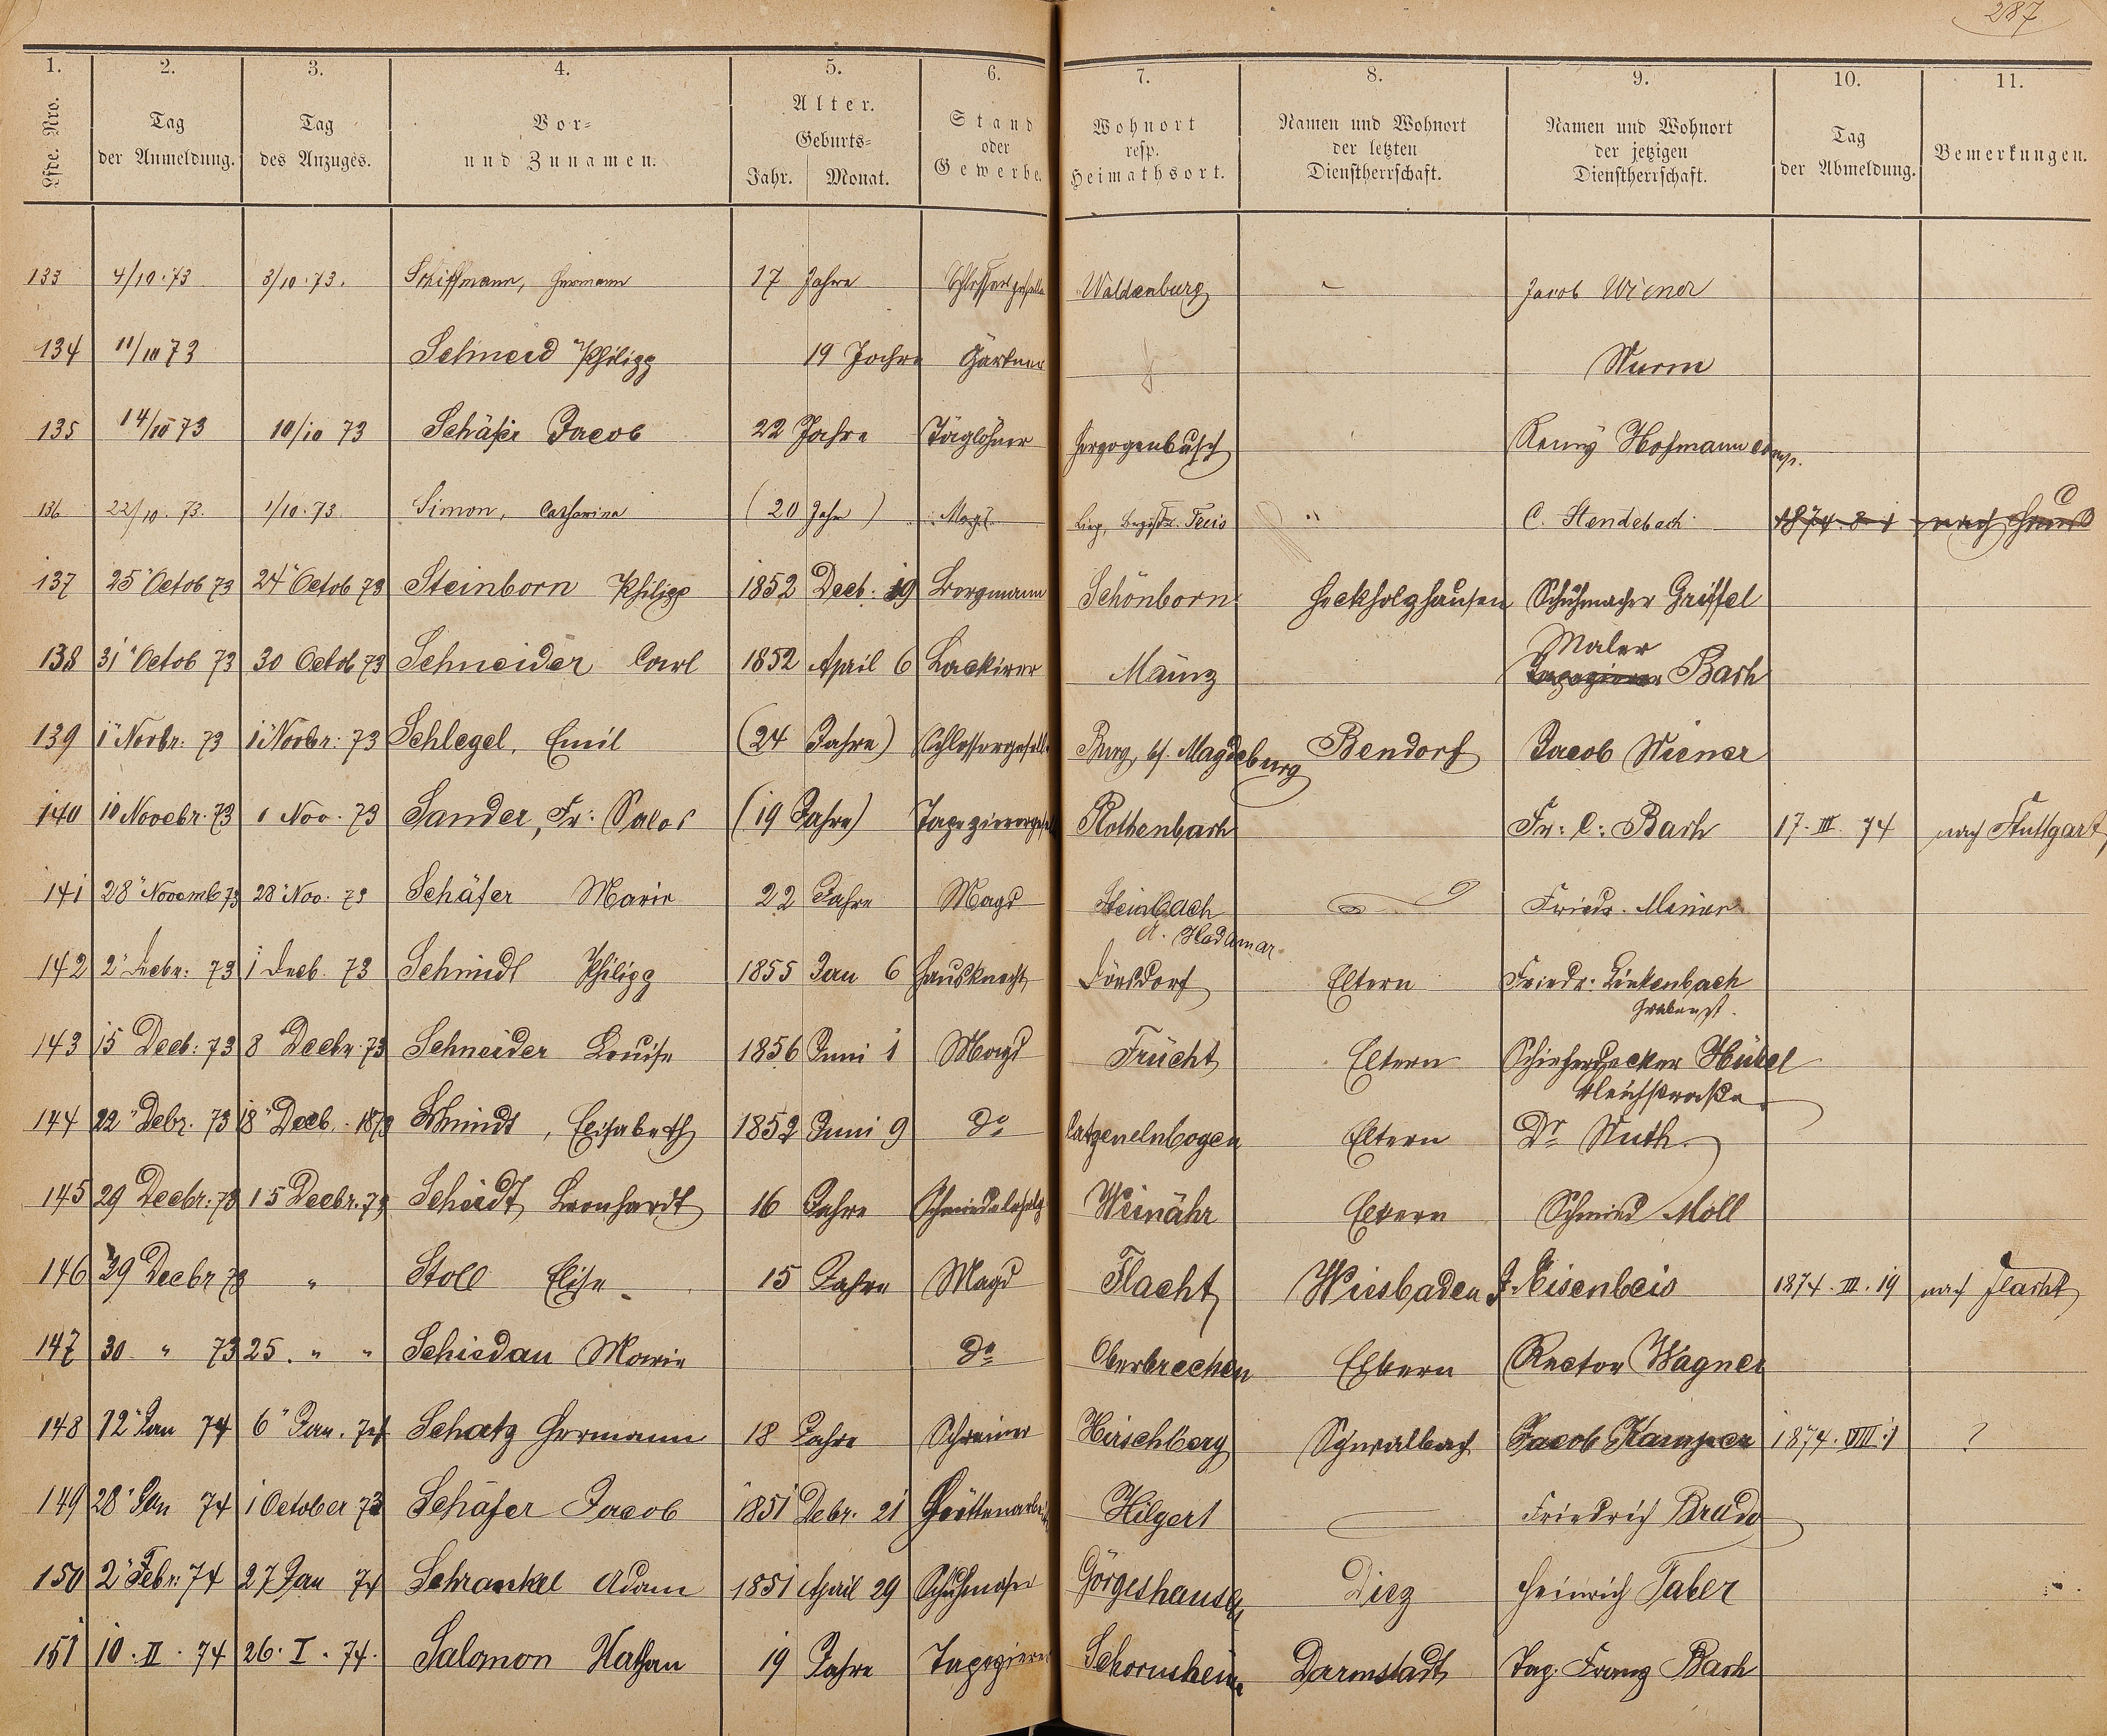 287
1. 2. 3. 4. 5. 6. 7. 8. 9. 10. 11.
Lfde. Nro. | Tag der Anmeldung. | Tag des Anzuges. | Vor- und Zunamen. | Alter. Geburts- Jahr. Monat. | Stand oder Gewerbe. | Wohnort resp. Heimathsort. | Namen und Wohnort der letzten Dienstherrschaft. | Namen und Wohnort der jetzigen Dienstherrschaft. | Tag der Abmeldung. | Bemerkungen.
133 4/10.73 3/10.73. Schiffmann, Hermann 17 Jahre Schlossergeselle Waldenburg - Jacob Wiener
134 11/10 73 Schmid Philipp 19 Jahre Gärtner Wurm
135 14/10 73 10/10 73 Schäfer Jacob 22 Jahre Taglöhner Herzogenbusch Hofmann Comp.
136 22/10. 73. 1/10.73 Simon, Catharina (20 Jahr) Magd Treis " C. Stendebach 1874.8.1 nach Haus
137 25" Octob 73 24" Octob 73 Steinborn Philipp 1852 Decb. 19 Bergmann Schönborn Heckholzhausen Schuhmacher Griffel
138 31" Octob 73 30 Octob 73 Schneider Carl 1852 April 6 Lackirer Mainz Maler
Tapezierer Bach
139 1" Novbr: 73 1" Novbr: 73 Schlegel, Emil (24 Jahre) Schlossergeselle Burg, b/. Magdeburg Bendorf Jacob Wiener
140 10 Novebr. 73 1 Nov. 73 Sander, Fr: (19 Jahre) Tapezierergesell Rothenbach Fr: C: Bach 17. III. 74 nach Stuttgart
141 28" Novemb 73 28" Nov. 73 Schäfer Marie 22 Jahre Magd Steinbach Friedr.
A. Hadamar
142 2" Decbr: 73 1 Decb. 73 Schmidt Philipp 1855 Jan 6 Hausknecht Dörsdorf Eltern Friedr. Linkenbach
Grabenst.
143 15 Decb: 73 8" Decbr. 73 Schneider Louise 1856 Juni 1 Magd Frücht Eltern Schieferdecker Hübel
Bleichstraße
144 22" Debr. 73 18" Decb. 1873 Schmidt, Elisabeth 1852 Juni 9 do Catzenelnbogen Eltern Dr Muth
145 29 Decbr: 73 15 Decbr. 73 Scheidt Leonhardt 16 Jahre Weinähr Eltern Schmied Moll
146 29 Decbr 73 " Stoll Elise 15 Jahre Magd Flacht Wiesbaden J. Eisenbeis 1874. III. 19 nach Flacht
147 30 " 73 25. " " Schiedau Marie do Oberbrechen Eltern Rector Wagner
148 12" Jan 74 6" Jan. 74 Schatz Hermann 18 Jahre Schreiner Hirschberg Schwalbach Jacob Kamper 1874. VIII. 1 ?
149 28" Jan 74 1 October 73 Schäfer Jacob 1851 Debr. 21 Hüttenarbeiter Hilgert Friedrich
150 2" Febr: 74 27 Jan 74 Schrankel Adam 1851 April 29 Schuhmacher Görgeshausen Diez Heinrich Faber
151 10. II. 74 26. I. 74. Salomon Nathan 19 Jahre Tapezierer Schornsheim Darmstadt Tap. Franz Bach